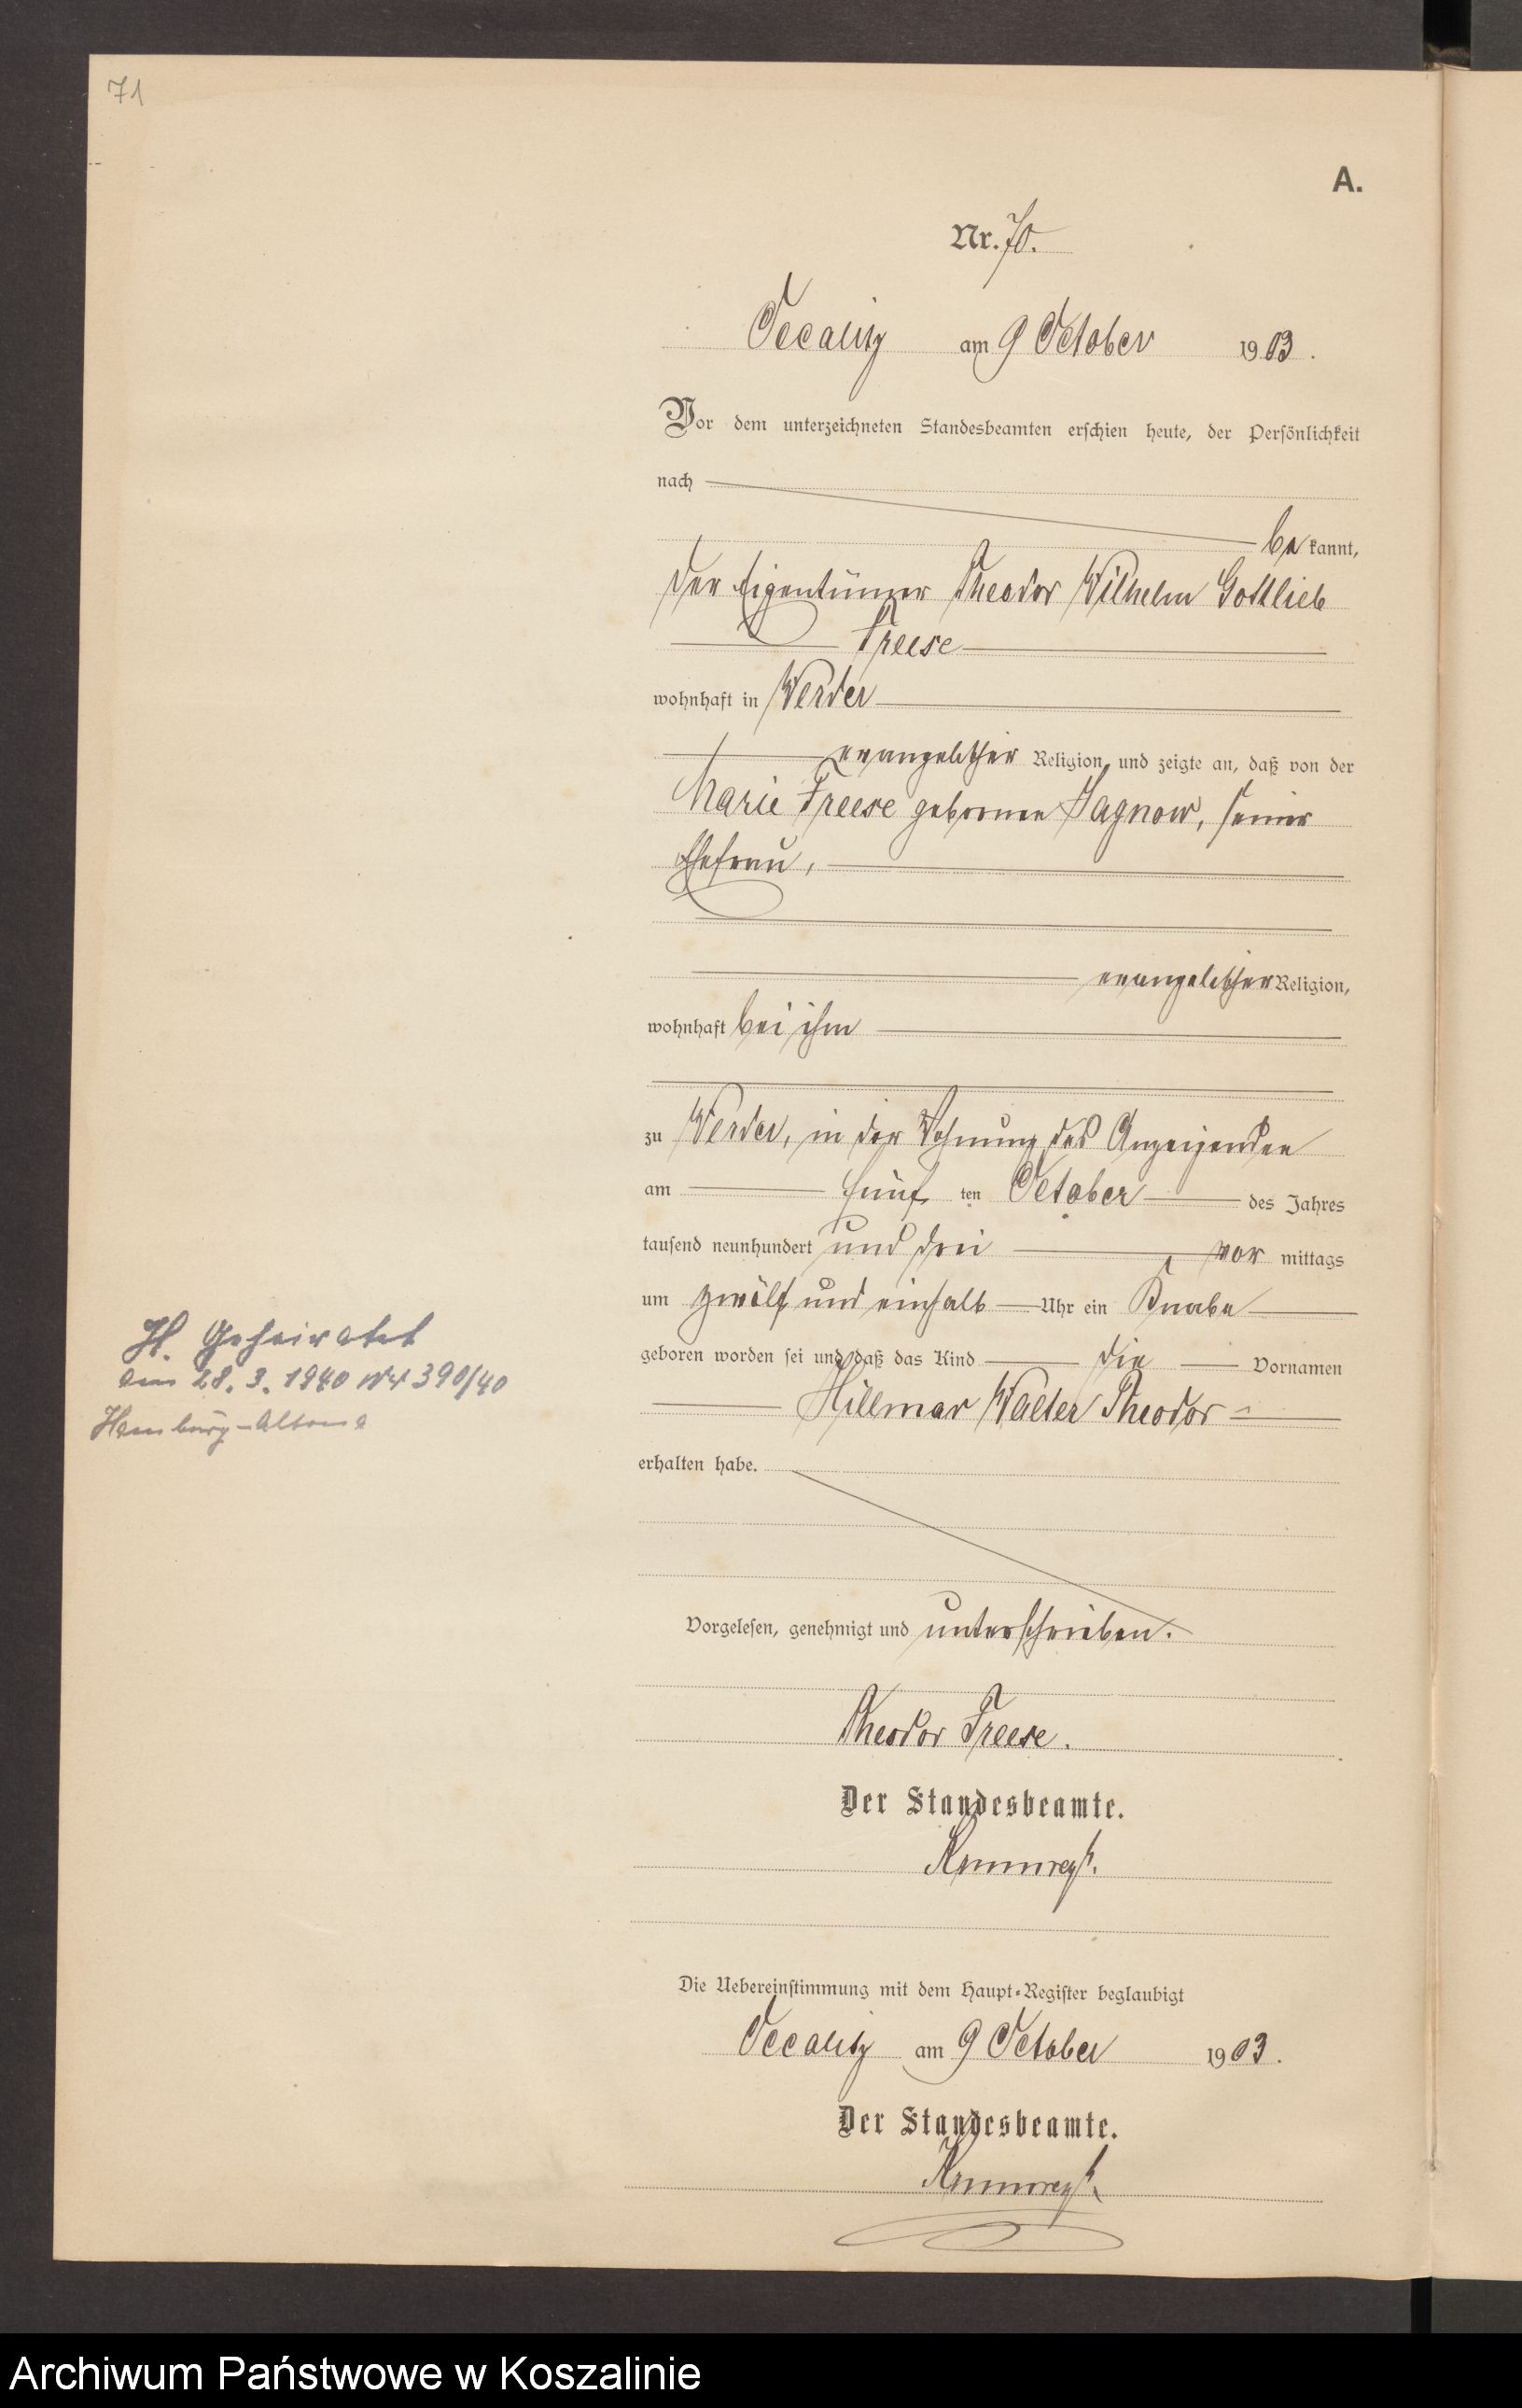 71
A.
Nr. 70.
Occalitz am 9 October 1903.
Vor dem unterzeichneten Standesbeamten erschien heute, der Persönlichkeit
nach
be kannt,
der Eigentümer Theodor Wilhelm Gottlieb
Freese
wohnhaft in Werder
evangelischer Religion, und zeigte an, daß von der
Marie Freese geborenen Hagnow, seiner
Ehefrau,
evangelischer Religion,
wohnhaft bei ihm
zu Werder, in der Wohnung des Anzeigenden
am fünf ten October des Jahres
tausend neunhundert und drei vor mittags
um zwölf und einhalb Uhr ein Knabe
geboren worden sei und daß das Kind die Vornamen
H. Geheiratet
am 28. 3. 1940 Nr 390/40
Hamburg-Altona
Hillmar Walter Theodor
erhalten habe.
Vorgelesen, genehmigt und unterschrieben.
Theodor Freese.
Der Standesbeamte.
Die Uebereinstimmung mit dem Haupt-Register beglaubigt
Occalitz am 9 October 1903.
Der Standesbeamte.
Archiwum Państwowe w Koszalinie